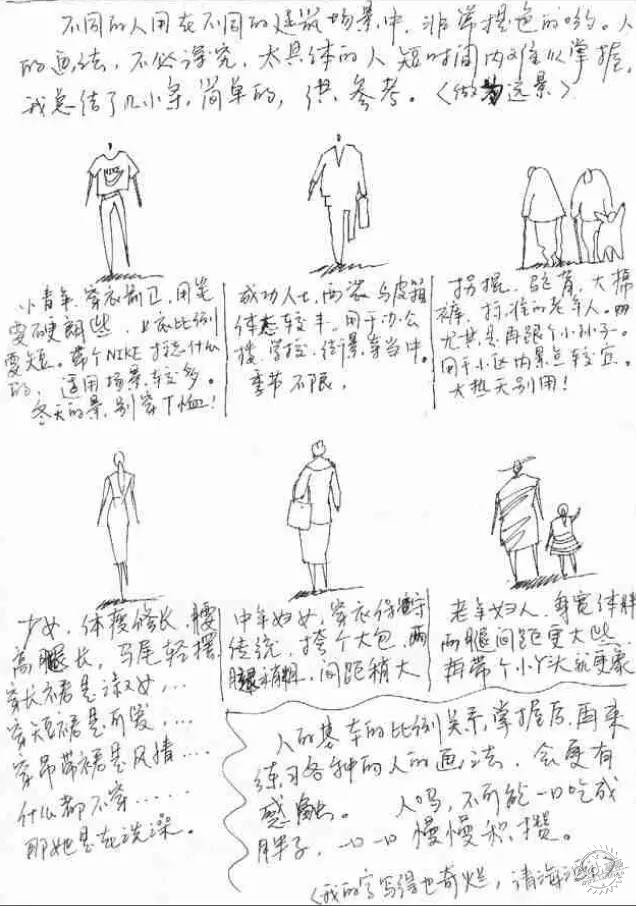 不同的人用在不同的建筑场景中，非常提色的哟。人
的画法，不必深究，太具体的人短时间内难以掌握，
我总结了几小条，简单的，供参考。〈做为远景〉
NIKE
小青年，穿衣前卫，用笔
要硬朗些，上衣比例
要短。带个NIKE标志什么
的，适用场景较多。
冬天的景，别穿T恤！
成功人士，西装与皮箱
体态较丰。用于办公
楼，学校，街景，等当中。
季节不限，
拐棍，驼背，大棉
裤，标准的老年人。
尤其是再跟个小孙子。
用于小区内景点较宜。
大热天别用！
少女，体瘦修长，腰
高腿长，马尾轻摆，
穿长裙是淑女，...
穿短裙是可爱，...
穿吊带裙是风情...
什么都不穿......
那她是在洗澡。
中年妇女，穿衣保守
传统，挎个大包，两
腿稍粗，间距稍大
老年妇人，身宽体胖
两腿间距更大些，
再带个小丫头就更象
人的基本的比例关系，掌握后，再来
练习各种的人的画法，会更有
感触。人吗，不可能一口吃成
胖子，一口一口慢慢积攒。
〈我的字写得也奇烂，请海涵